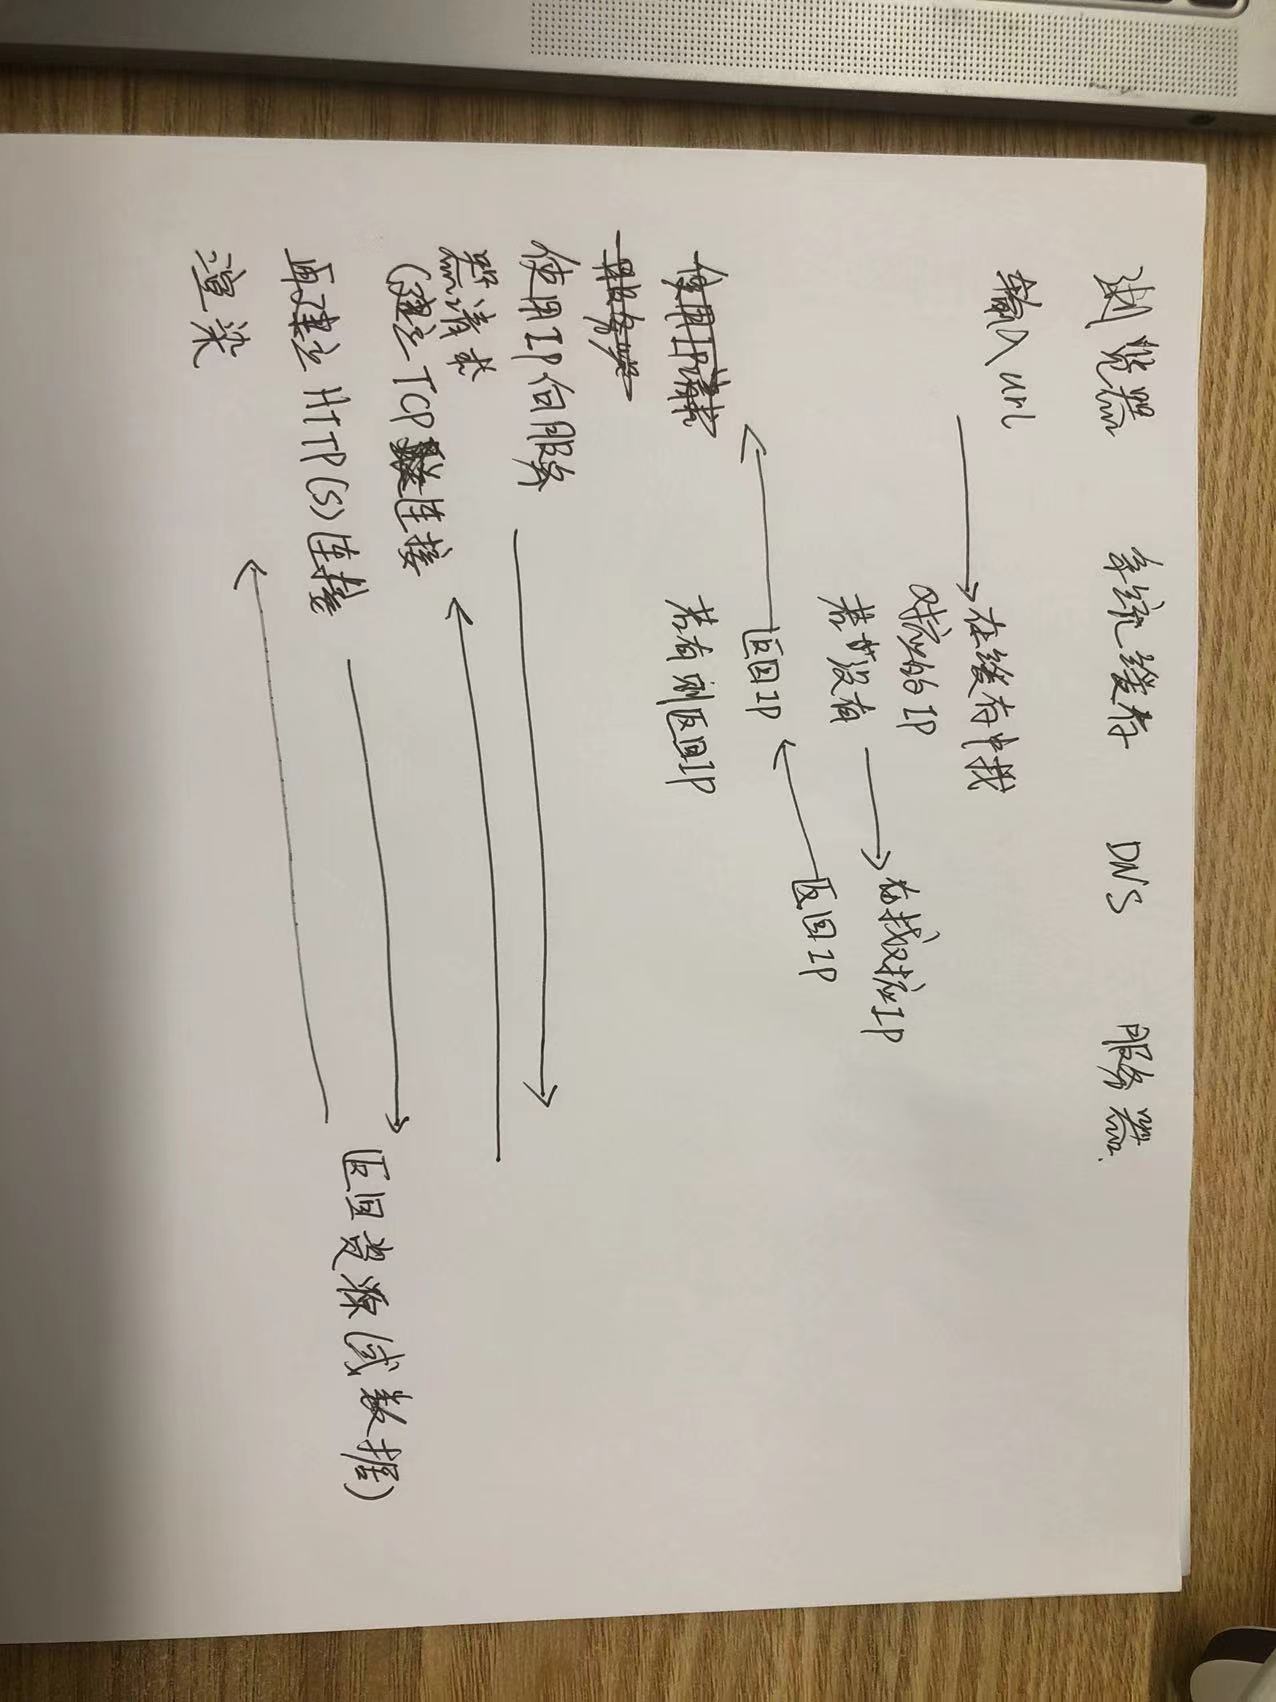 浏览器 系统缓存 DNS 服务器
输入url
在缓存中找
对应的IP
若没有
去找对应IP
返回IP
返回IP
若有则返回IP
使用IP请求
服务器
使用IP向服务
器请求
(建立TCP连接
再建立HTTP(S)连接
返回资源(或数据)
渲染